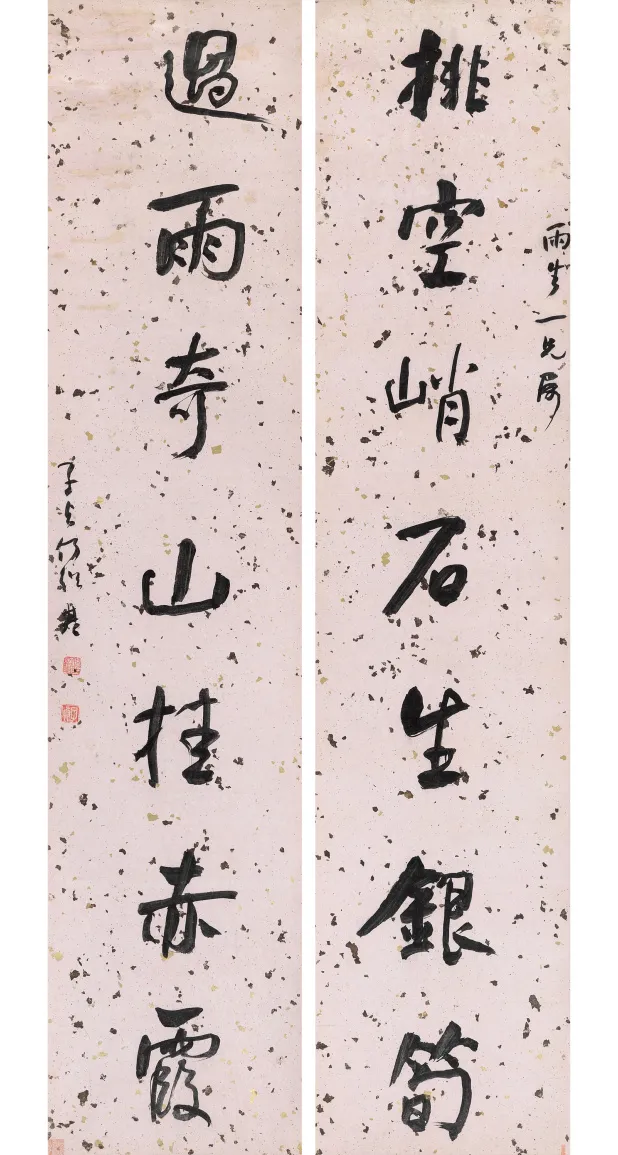 雨生一兄属
挑空峭石生銀筍
過雨奇山挂赤霞
子貞何紹基